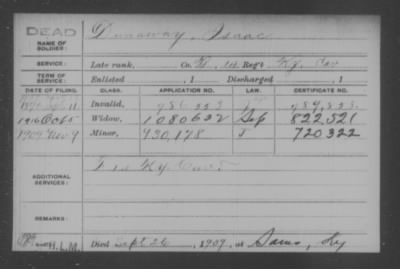 DEAD
NAME OF SOLDIER: Dunaway, Isaac
SERVICE: Late rank, Co. 14 Reg't Ky. Cav
TERM OF SERVICE: Enlisted , 1 Discharged , 1
DATE OF FILING. CLASS. APPLICATION NO. LAW. CERTIFICATE NO.
11 Invalid,
1916 Oct 5 Widow, 1080632 Sep 822,521
1909 Nov 9 Minor, 930,178 720322
ADDITIONAL SERVICES: Ky
REMARKS:
H.L.M. Died Sept 26, 1909, at Sams, Ky